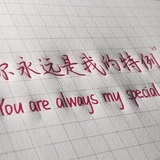 你永远是我的特例"
You are always my special